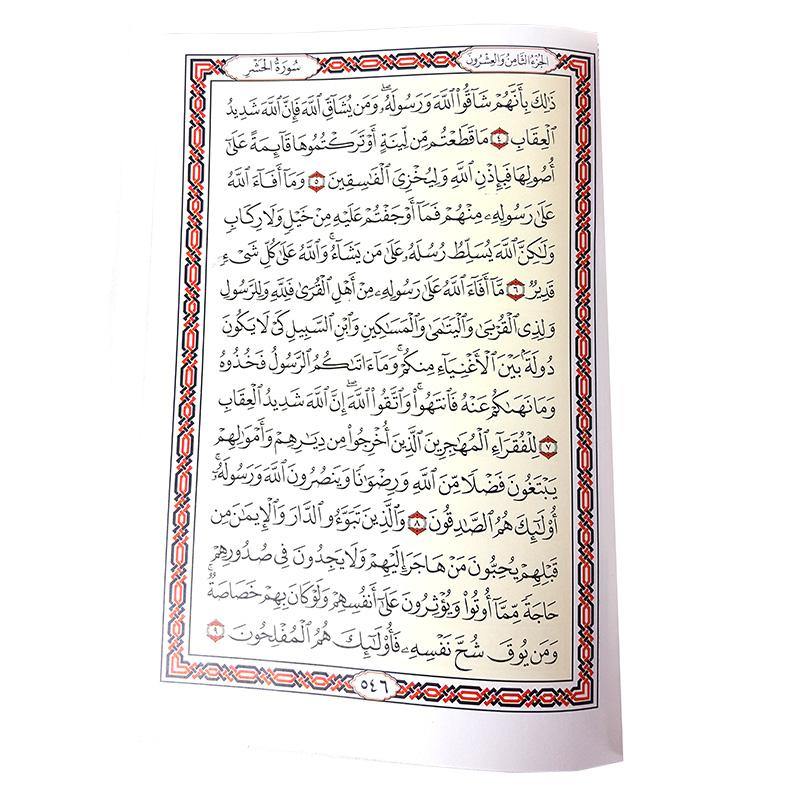 الجزء الثامن والعشرون
سورة الحشر
ذَٰلِكَ بِأَنَّهُمْ شَاقُّوا۟ ٱللَّهَ وَرَسُولَهُۥ ۖ وَمَن يُشَآقِّ ٱللَّهَ فَإِنَّ ٱللَّهَ شَدِيدُ
ٱلْعِقَابِ ٤ مَا قَطَعْتُم مِّن لِّينَةٍ أَوْ تَرَكْتُمُوهَا قَآئِمَةً عَلَىٰٓ
أُصُولِهَا فَبِإِذْنِ ٱللَّهِ وَلِيُخْزِىَ ٱلْفَـٰسِقِينَ ٥ وَمَآ أَفَآءَ ٱللَّهُ
عَلَىٰ رَسُولِهِۦ مِنْهُمْ فَمَآ أَوْجَفْتُمْ عَلَيْهِ مِنْ خَيْلٍ وَلَا رِكَابٍ
وَلَـٰكِنَّ ٱللَّهَ يُسَلِّطُ رُسُلَهُۥ عَلَىٰ مَن يَشَآءُ ۚ وَٱللَّهُ عَلَىٰ كُلِّ شَىْءٍ
قَدِيرٌ ٦ مَّآ أَفَآءَ ٱللَّهُ عَلَىٰ رَسُولِهِۦ مِنْ أَهْلِ ٱلْقُرَىٰ فَلِلَّهِ وَلِلرَّسُولِ
وَلِذِى ٱلْقُرْبَىٰ وَٱلْيَتَـٰمَىٰ وَٱلْمَسَـٰكِينِ وَٱبْنِ ٱلسَّبِيلِ كَىْ لَا يَكُونَ
دُولَةًۢ بَيْنَ ٱلْأَغْنِيَآءِ مِنكُمْ ۚ وَمَآ ءَاتَىٰكُمُ ٱلرَّسُولُ فَخُذُوهُ
وَمَا نَهَىٰكُمْ عَنْهُ فَٱنتَهُوا۟ ۚ وَٱتَّقُوا۟ ٱللَّهَ ۖ إِنَّ ٱللَّهَ شَدِيدُ ٱلْعِقَابِ
٧ لِلْفُقَرَآءِ ٱلْمُهَـٰجِرِينَ ٱلَّذِينَ أُخْرِجُوا۟ مِن دِيَـٰرِهِمْ وَأَمْوَٰلِهِمْ
يَبْتَغُونَ فَضْلًا مِّنَ ٱللَّهِ وَرِضْوَٰنًا وَيَنصُرُونَ ٱللَّهَ وَرَسُولَهُۥٓ ۚ
أُو۟لَـٰٓئِكَ هُمُ ٱلصَّـٰدِقُونَ ٨ وَٱلَّذِينَ تَبَوَّءُو ٱلدَّارَ وَٱلْإِيمَـٰنَ مِن
قَبْلِهِمْ يُحِبُّونَ مَنْ هَاجَرَ إِلَيْهِمْ وَلَا يَجِدُونَ فِى صُدُورِهِمْ
حَاجَةً مِّمَّآ أُوتُوا۟ وَيُؤْثِرُونَ عَلَىٰٓ أَنفُسِهِمْ وَلَوْ كَانَ بِهِمْ خَصَاصَةٌ ۚ
وَمَن يُوقَ شُحَّ نَفْسِهِۦ فَأُو۟لَـٰٓئِكَ هُمُ ٱلْمُفْلِحُونَ ٩
٥٤٦